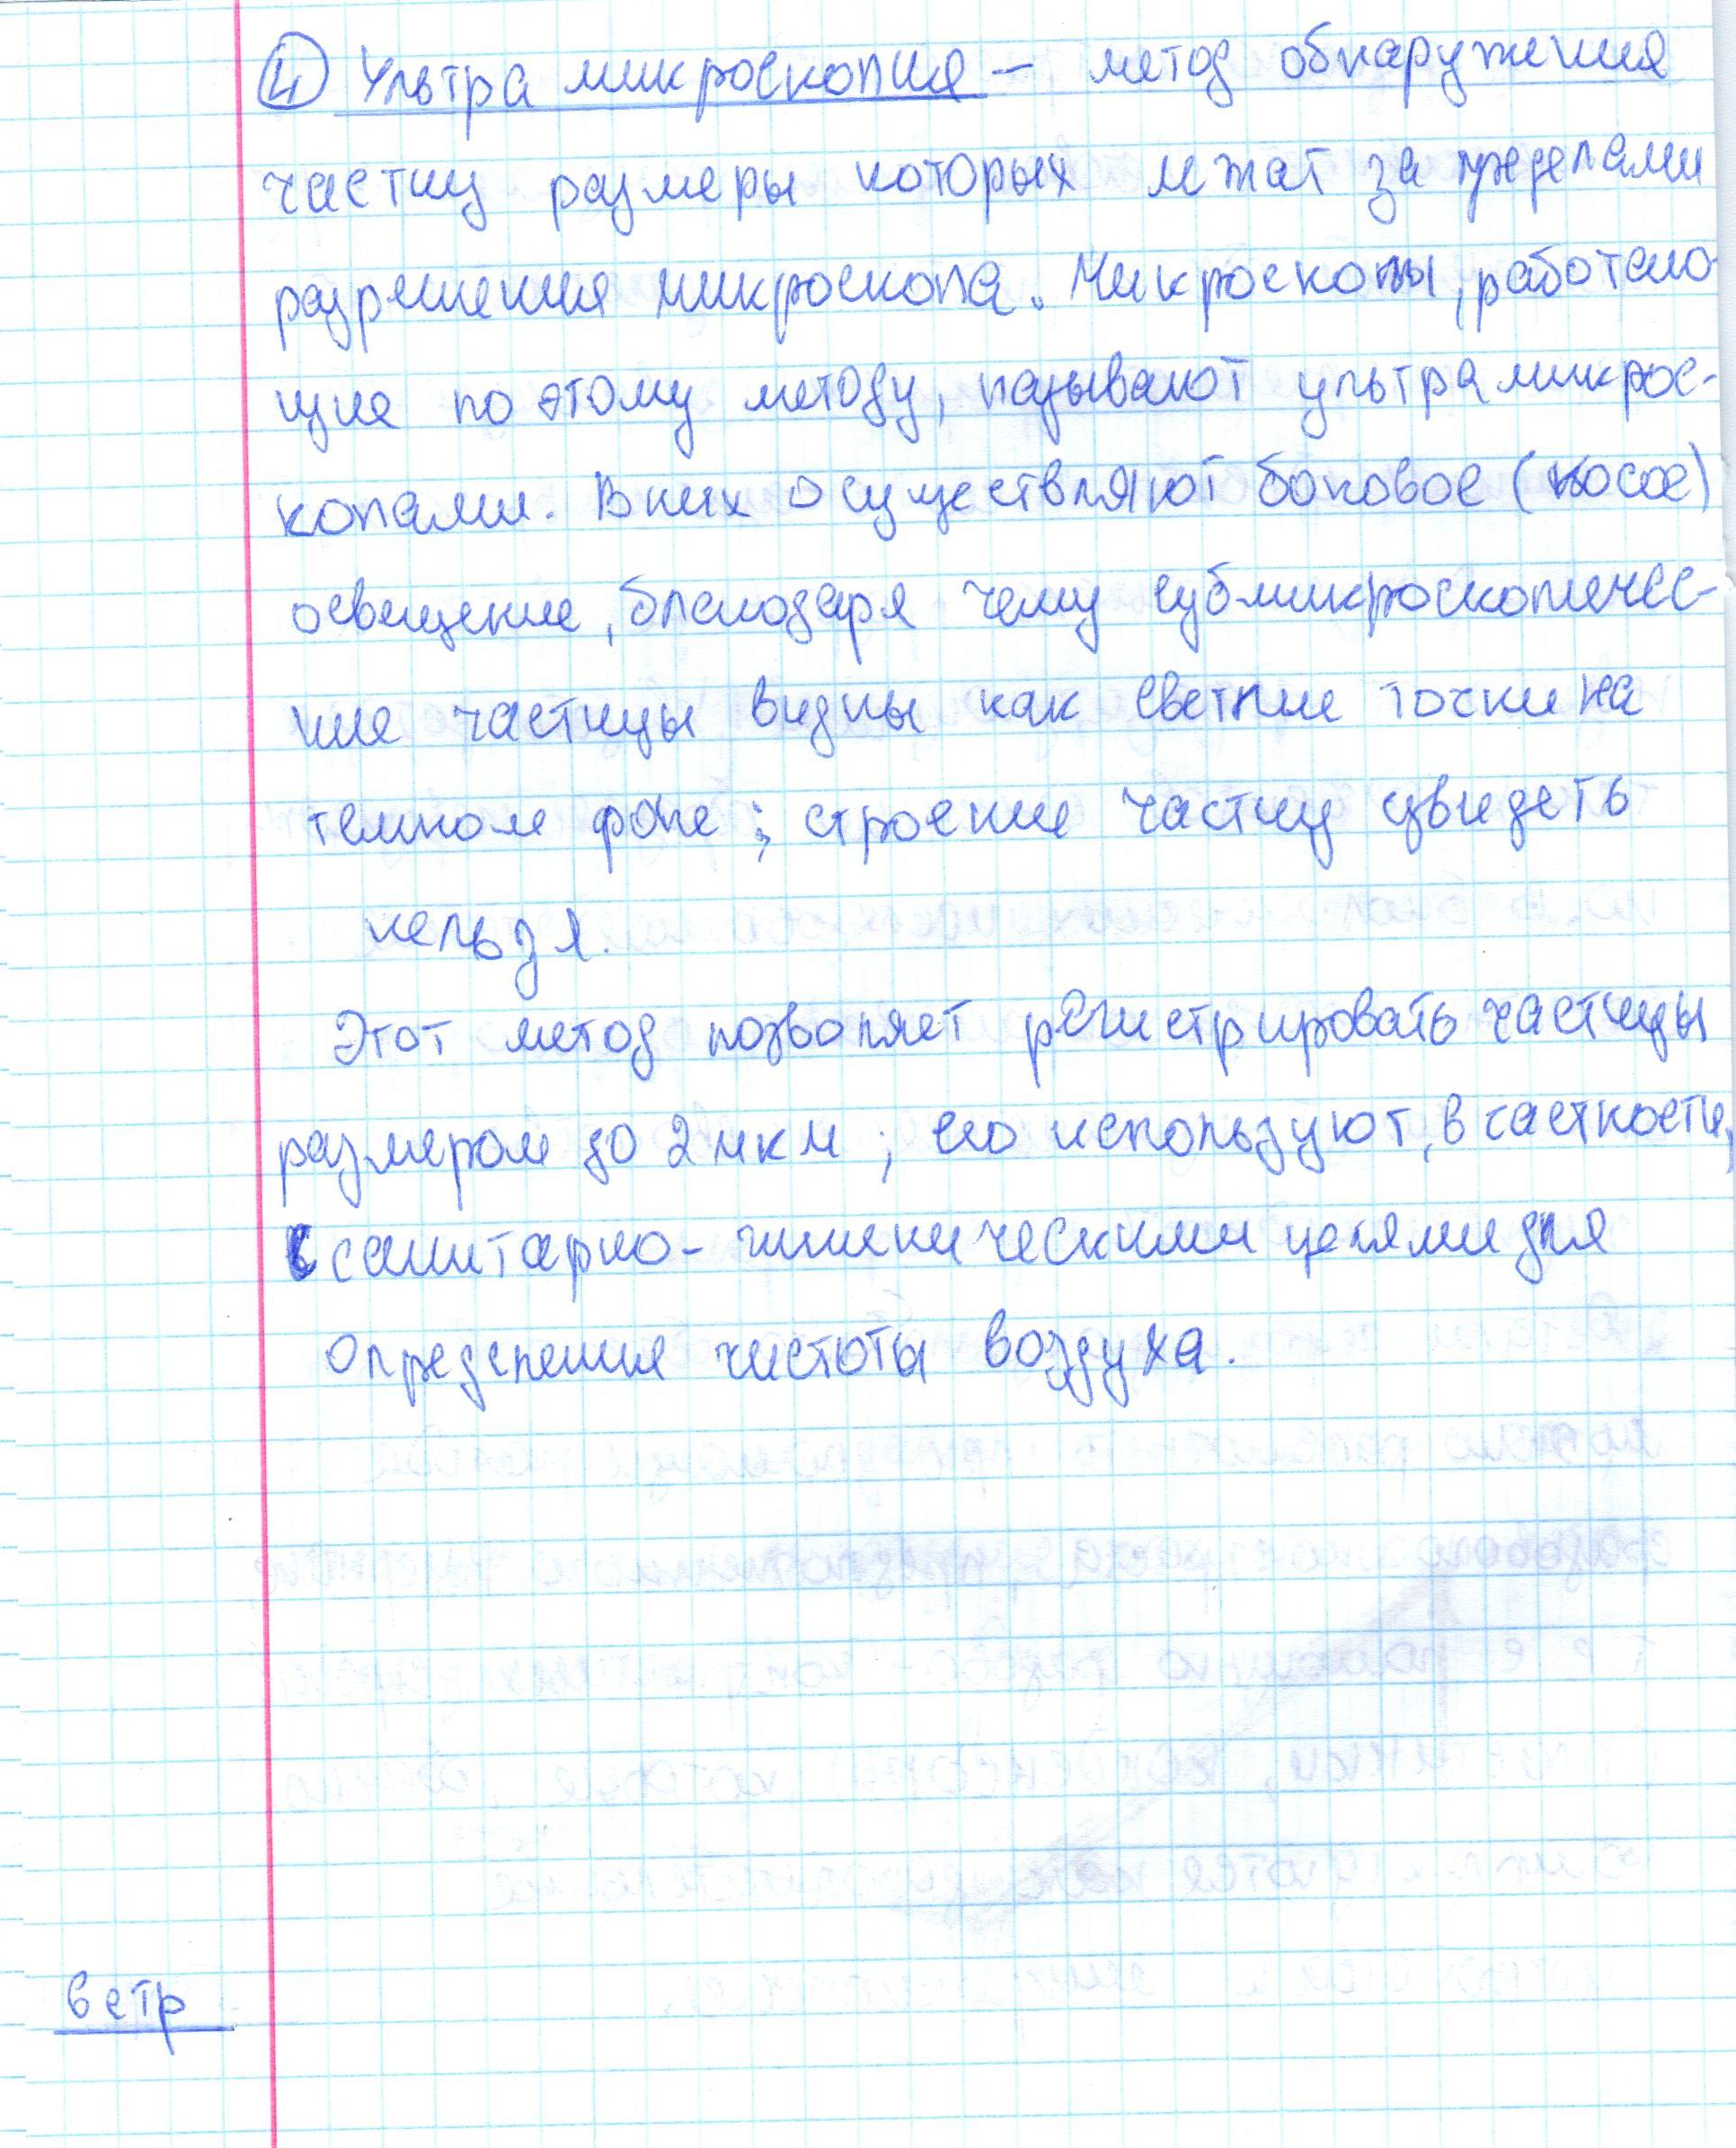 4 Ультра микроскопия – метод обнаружения
частиц размеры которых лежат за пределами
разрешения микроскопа. Микроскопы, работаю-
щие по этому методу, называют ультрамикрос-
копами. В них осуществляют боковое (косое)
освещение, благодаря чему субмикроскопичес-
кие частицы видны как светлые точки на
темном фоне; строение частиц увидеть
нельзя.
Этот метод позволяет регистрировать частицы
размером до 2 мкм; его используют, в частности,
с санитарно-гигиеническими целями для
определения чистоты воздуха.
6 стр